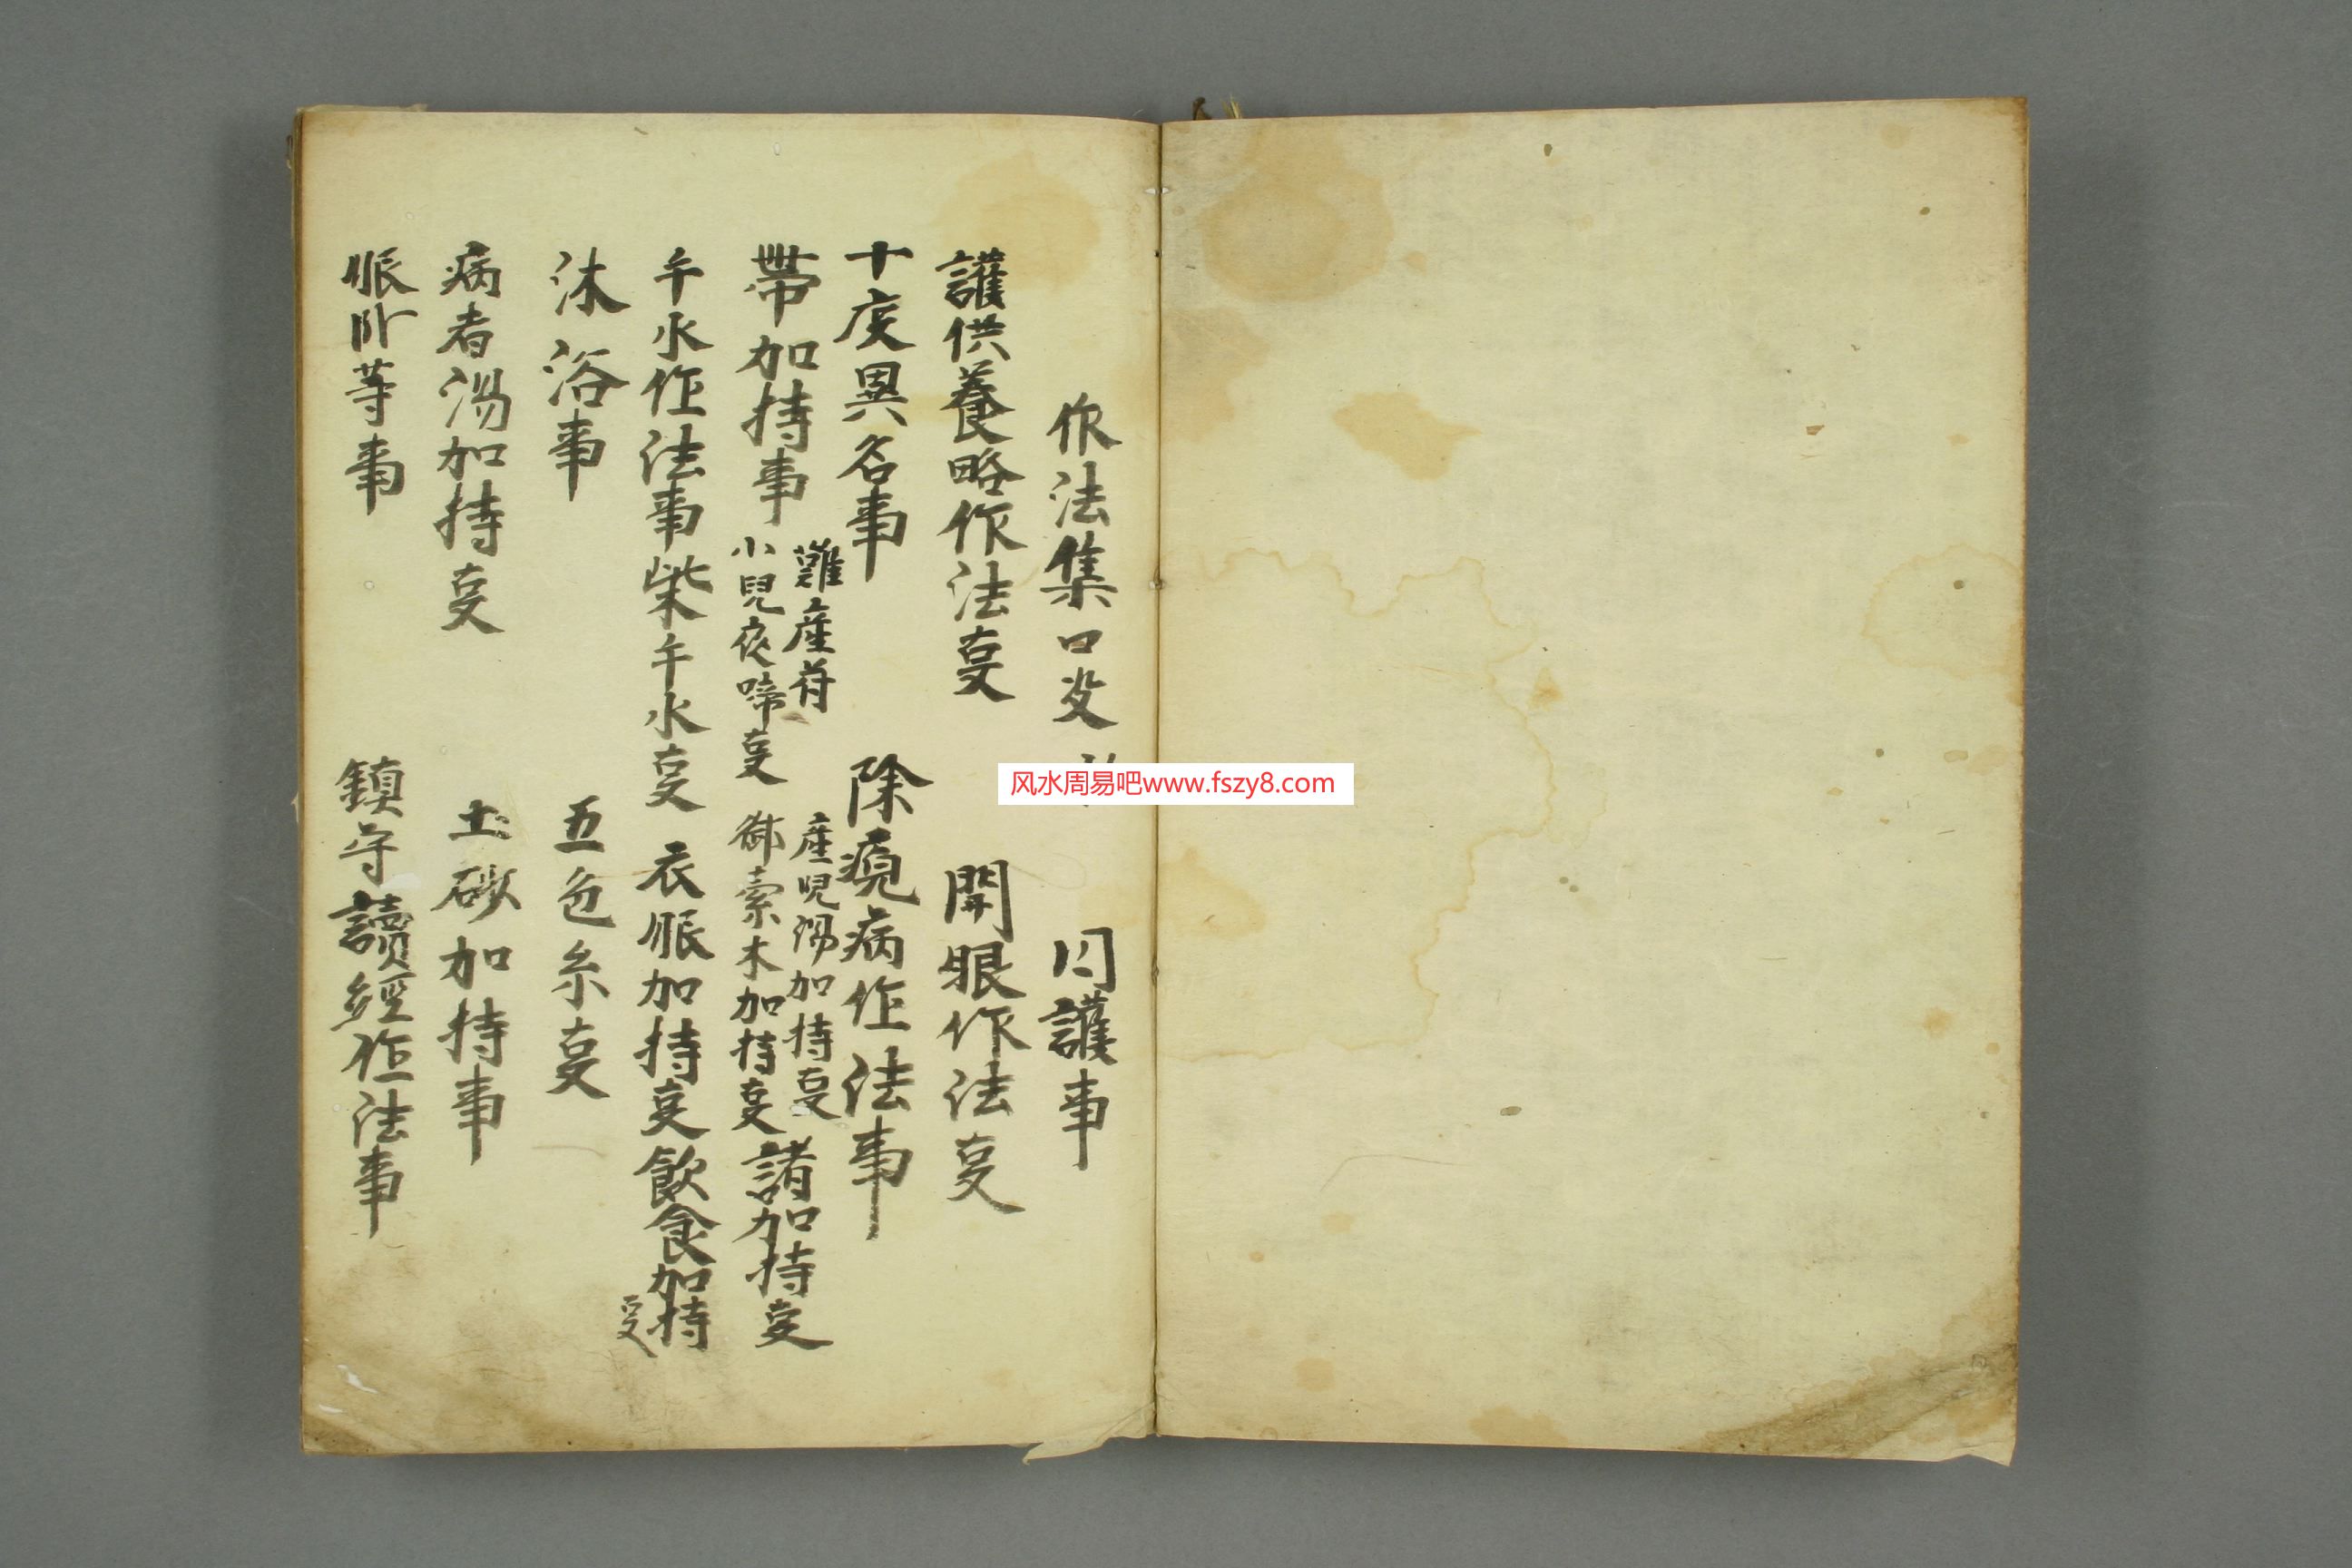 作法集口决
同護事
護供養略作法叓
開眼作法叓
十度異名事
除病作法事
帶加持事
難産符
小兒夜啼叓
産児湯加持叓
御索木加持叓
諸加持叓
午水作法事
柴午水叓
衣服加持叓
飲食加持叓
沐浴事
五色糸叓
病者湯加持叓
土砂加持事
服卧等事
鎮守讀經作法事
风水周易吧www.fszy8.com